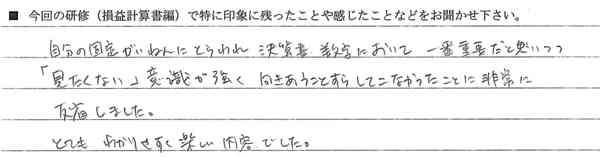 ■ 今回の研修（損益計算書編）で特に印象に残ったことや感じたことなどをお聞かせ下さい。
自分の固定がいねんにとらわれ 決算書 数字において 一番重要だと思いつつ
「見たくない」意識が強く 向きあうことすらしてこなかったことに非常に
反省しました。
とても わかりやすく楽しい内容でした。